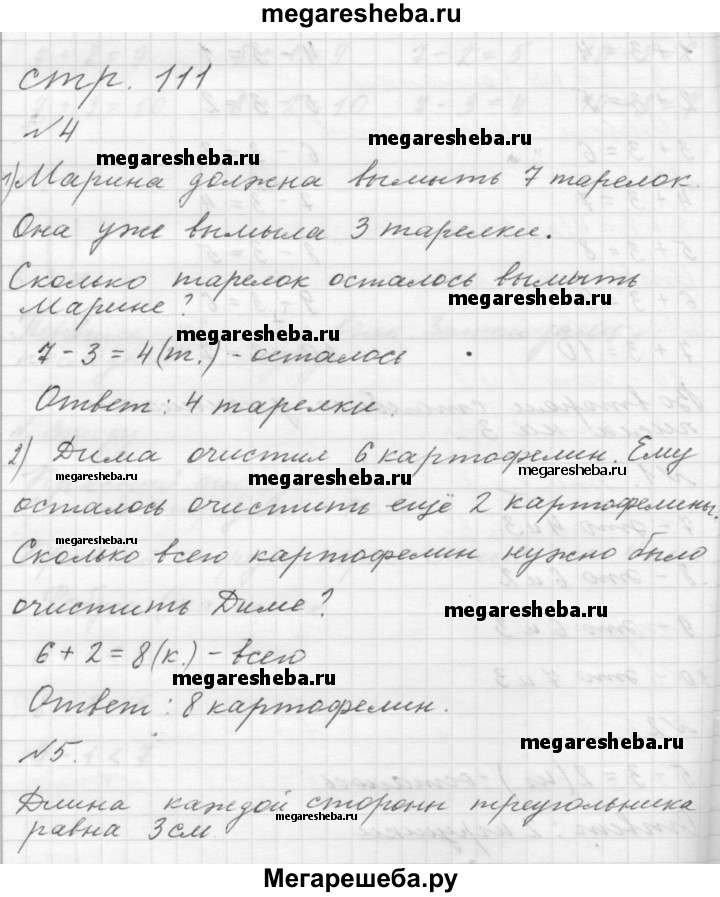 megaresheba.ru
стр. 111
№4
megaresheba.ru
1) Марина должна вымыть 7 тарелок.
Она уже вымыла 3 тарелки.
Сколько тарелок осталось вымыть
Марине?
megaresheba.ru
megaresheba.ru
7 - 3 = 4 (т.) - осталось
Ответ: 4 тарелки.
2) Дима очистил 6 картофелин. Ему
megaresheba.ru
megaresheba.ru
осталось очистить ещё 2 картофелины.
megaresheba.ru
Сколько всего картофелин нужно было
очистить Диме?
megaresheba.ru
6 + 2 = 8 (к.) - всего
megaresheba.ru
Ответ: 8 картофелин.
№5.
megaresheba.ru
Длина каждой стороны треугольника
megaresheba.ru
равна 3 см.
Мегарешеба.ру